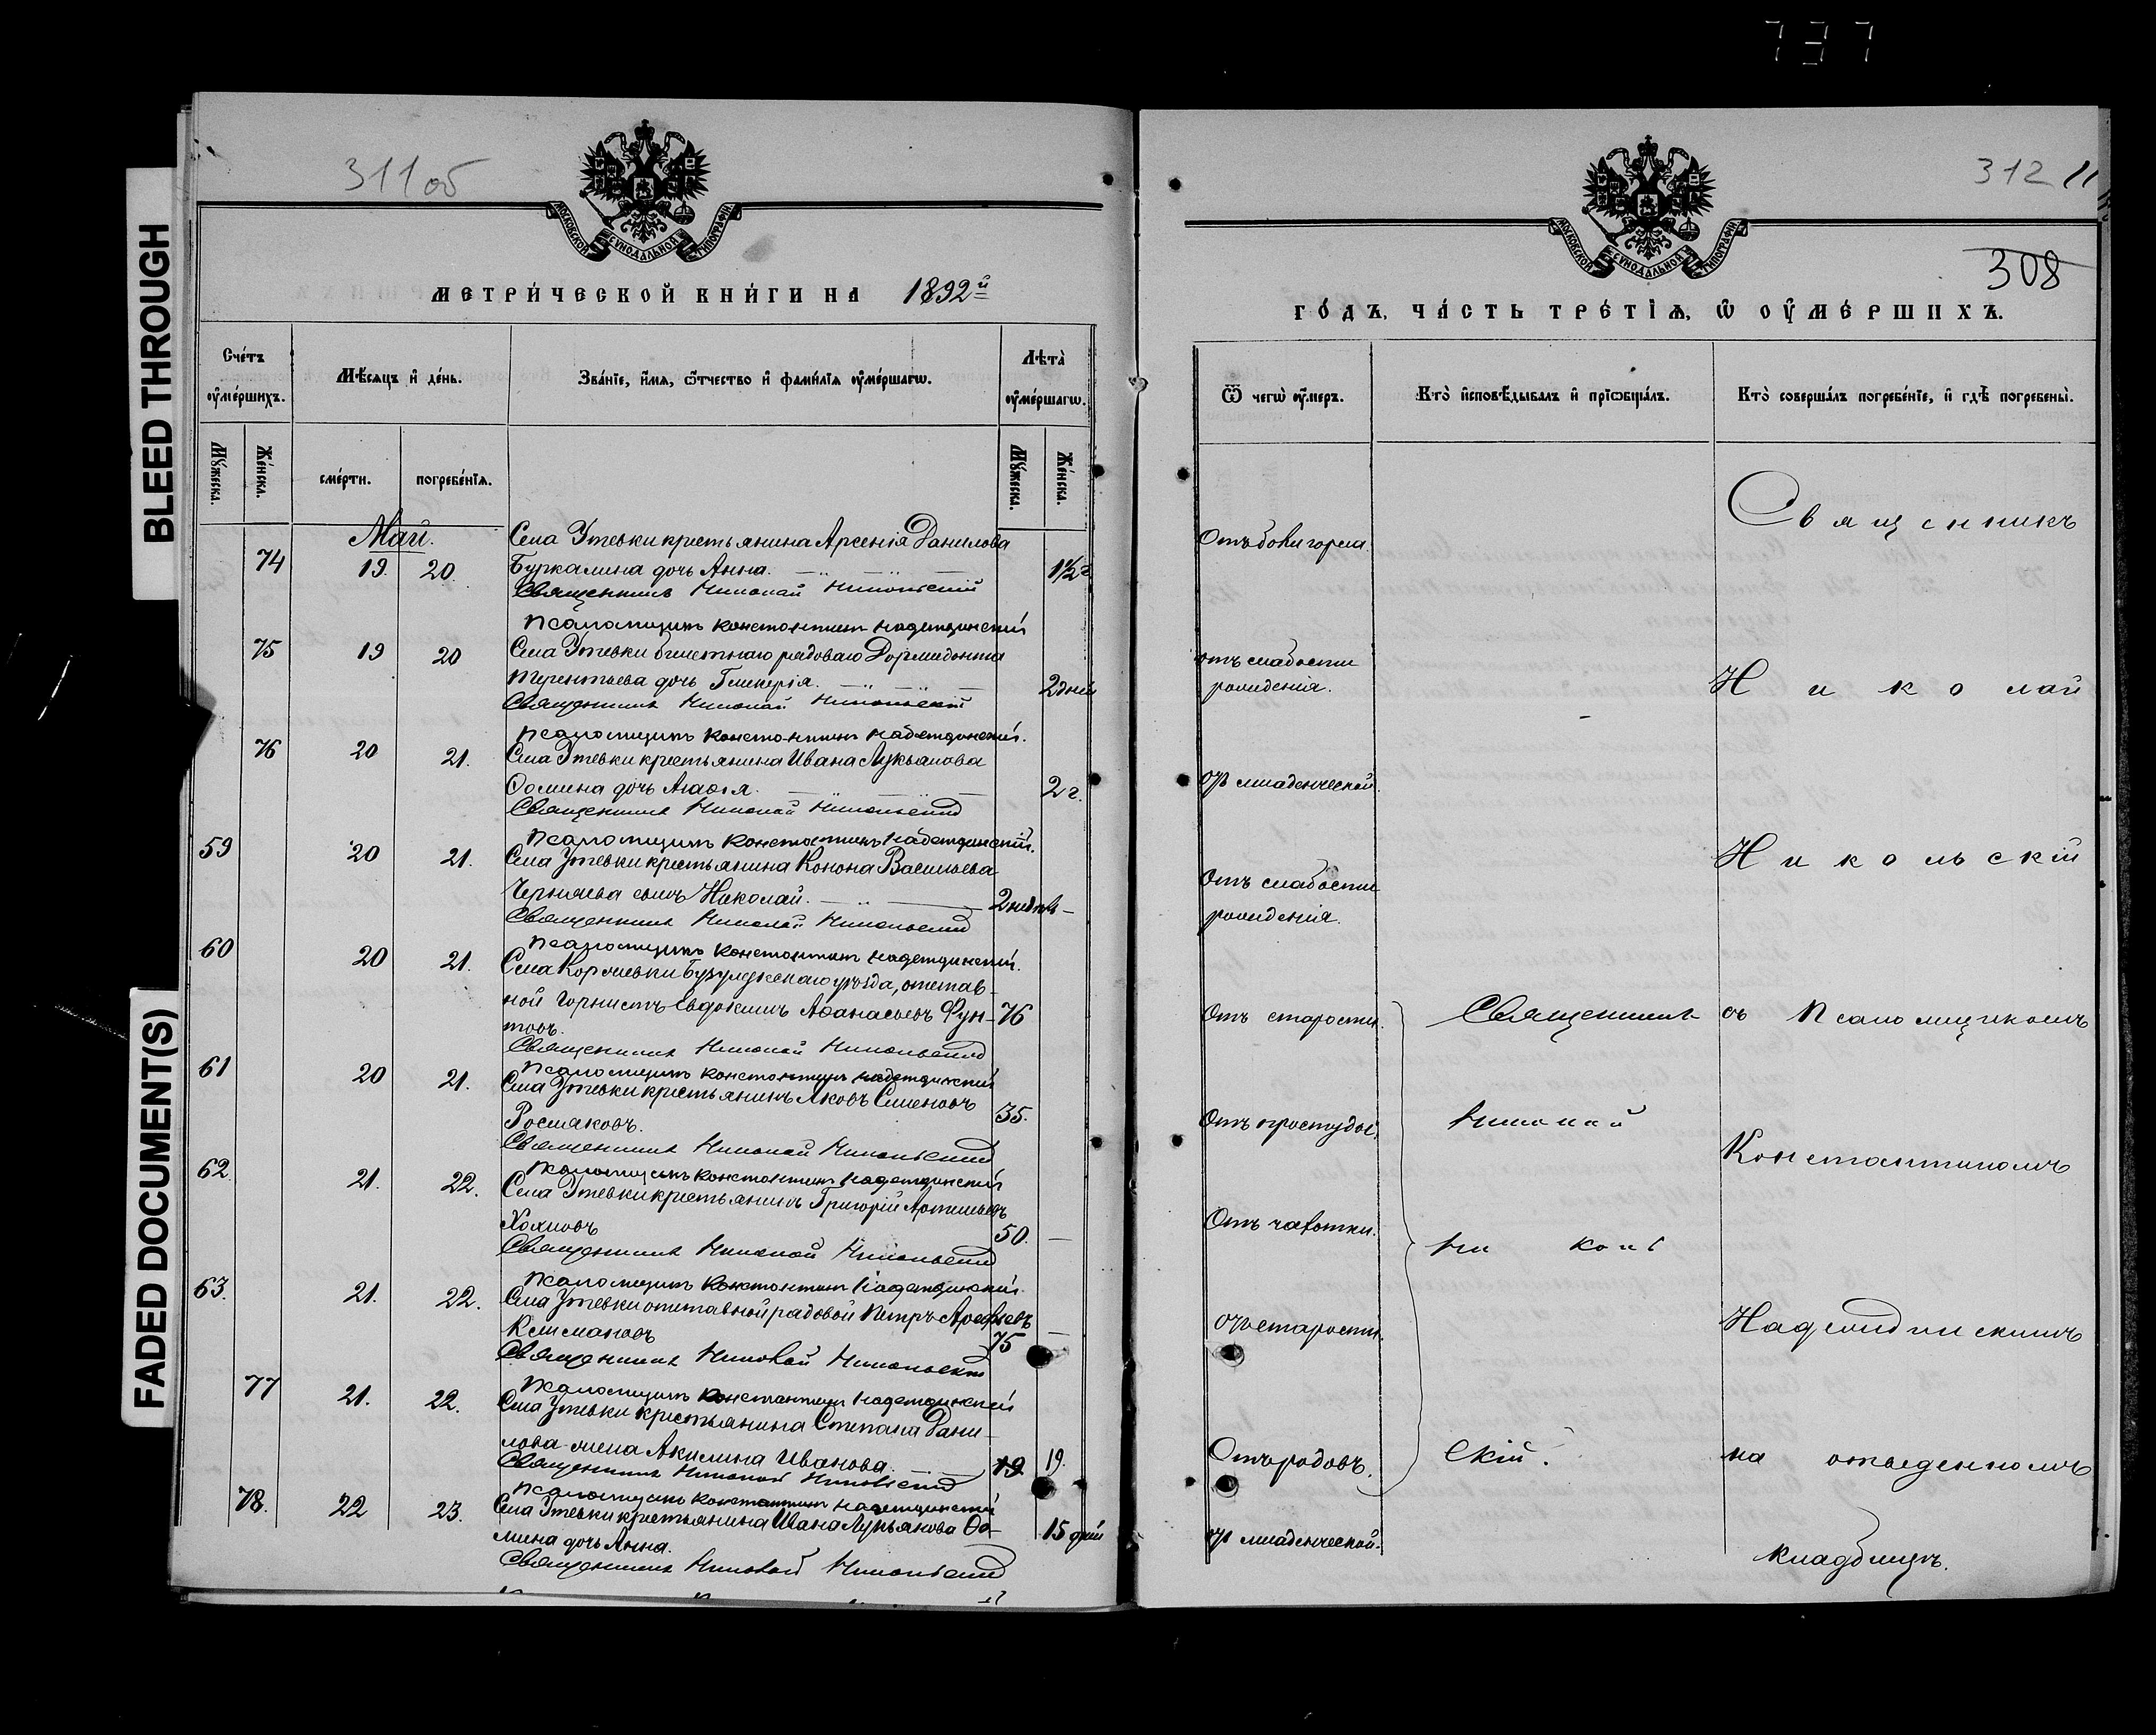 737
BLEED THROUGH
FADED DOCUMENT(S)
311 об
МОСКОВСКОЙ СѴНОДАЛЬНОЙ ТИПОГРАФІИ
МЕТРИ́ЧЕСКОЙ КНИ́ГИ НА 1892й
Счетъ ѹмершихъ.
Мѣсяцъ и день.
Званіе, имя, ѿчество и фамилія ѹмершагѡ.
Лѣта ѹмершагѡ.
Мужеска.
Женска.
смерти.
погребенія.
Мужеска.
Женска.
Май.
Села Утевки крестьянина Арсенія Данилова
74 19. 20. Буркалина дочь Анна. 1½ г
Священникъ Николай Никольскій
Псаломщикъ Константинъ Надеждинскій
75 19 20 Села Утевки билетнаго рядоваго Дормидонта
Терентьева дочь Гликерія. 2 дней
Священникъ Николай Никольскій
Псаломщикъ Константинъ Надеждинскій.
76 20 21. Села Утевки крестьянина Ивана Лукьянова
Ѳомина дочь Агаѳія. 2 г.
Священникъ Николай Никольскій
Псаломщикъ Константинъ Надеждинскій.
59 20 21. Села Утевки крестьянина Конона Васильева
Черняева сынъ Николай. 2 недѣль
Священникъ Николай Никольскій
Псаломщикъ Константинъ Надеждинскій.
60 20 21. Села Корнѣевки Бузулукскаго уѣзда, отстав-
ной горнистъ Евдокимъ Аѳанасьевъ Фун- 76
товъ.
Священникъ Николай Никольскій
Псаломщикъ Константинъ Надеждинскій
61 20 21. Села Утевки крестьянинъ Яковъ Семеновъ
35.
Священникъ Николай Никольскій
Псаломщикъ Константинъ Надеждинскій
62 21. 22. Села Утевки крестьянинъ Григорій Артемьевъ
Хохловъ 50.
Священникъ Николай Никольскій
Псаломщикъ Константинъ Надеждинскій.
63. 21. 22. Села Утевки отставной рядовой Петръ Арефьевъ
75
Священникъ Николай Никольскій
Псаломщикъ Константинъ Надеждинскій
77 21. 22. Села Утевки крестьянина Степана Дани-
лова жена Акилина Иванова. 19 19.
Священникъ Николай Никольскій
Псаломщикъ Константинъ Надеждинскій
78. 22 23. Села Утевки крестьянина Ивана Лукьянова Ѳо- 15 дней
мина дочь Анна.
Священникъ Николай Никольскій
312
308
МОСКОВСКОЙ СѴНОДАЛЬНОЙ ТИПОГРАФІИ
ГО́ДЪ, ЧА́СТЬ ТРЕ́ТІѦ, Ѡ ОУМЕ́РШИХЪ.
Ѿ чегѡ ѹмеръ.
Кто исповѣдывалъ и пріѡбщалъ.
Кто совершалъ погребеніе, и гдѣ погребены.
Священникъ
Отъ боли горла.
отъ слабости
рожденія.
Николай
отъ младенческой.
Никольскій
Отъ слабости
рожденія.
Отъ старости.
Священникъ
съ Псаломщикомъ
Отъ простуды.
Николай
Константиномъ
Отъ чахотки.
Никольскій.
отъ старости.
Надеждинскимъ
Отъ родовъ.
на отведенномъ
отъ младенческой.
кладбищѣ.